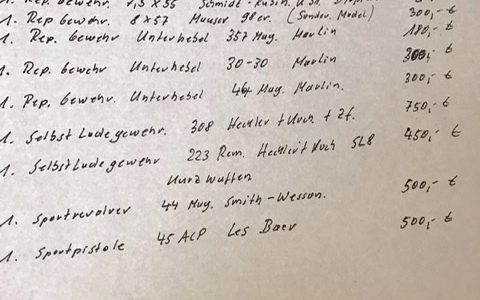 1. Rep. Gewehr. 7,5 x 55 Schmidt-Rubin.
1. Rep Gewehr. 8 x 57 Mauser 98er. (Sonder. Model) 300,- €
1. Rep. Gewehr Unterhebel 357 Mag. Marlin 180,- €
1. Rep. Gewehr Unterhebel 30-30 Marlin 300,- €
1. Rep. Gewehr. Unterhebel 44 Mag. Marlin. 300,- €
1. Selbst Ladegewehr. 308 Heckler + Koch + Zf. 750,- €
1. Selbst Ladegewehr 223 Rem. Heckler + Koch SL8 450,- €
Kurzwaffen
1. Sportrevolver 44 Mag. Smith-Wesson. 500,- €
1. Sportpistole 45 ACP Les Baer 500,- €